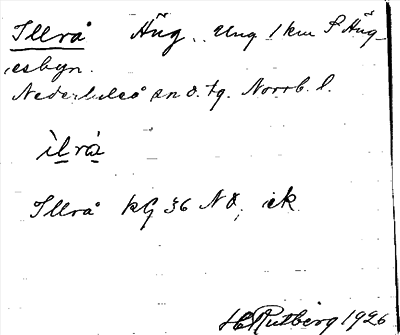 Illrå Äng. Ung 1 km S Äng-
esbyn.
Nederluleå sn o. tg. Norrb. l.
ìlrå
Illrå kG 36 NO, ek.
H Rutberg 1926